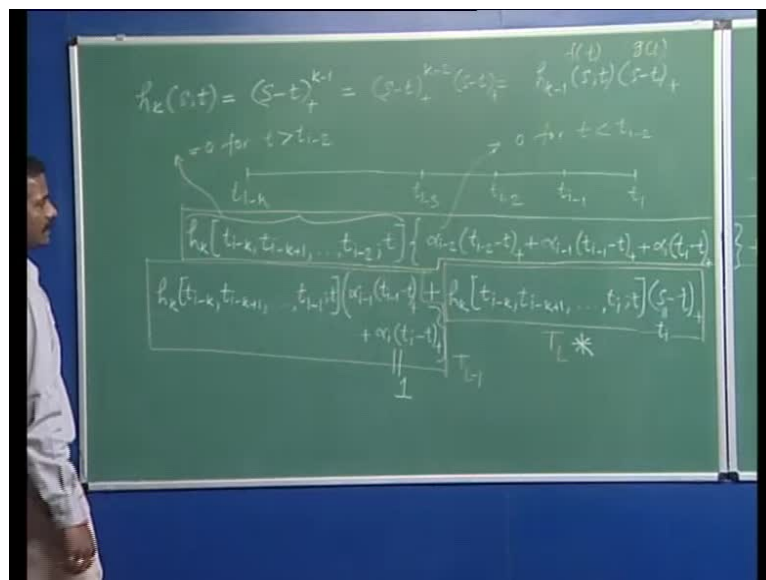 f(t) g(t)
h_k(s,t) = (s-t)_+^{k-1} = (s-t)_+^{k-2} (s-t)_+ = h_{k-1}(s,t)(s-t)_+
=0 for t>t_{i-2} = 0 for t<t_{i-2}
t_{i-k} t_{i-3} t_{i-2} t_{i-1} t_i
h_k[t_{i-k}, t_{i-k+1}, ..., t_{i-2}; t]{α_{i-2}(t_{i-2}-t)_+ + α_{i-1}(t_{i-1}-t)_+ + α_i(t_i-t)_+}
h_k[t_{i-k}, t_{i-k+1}, ..., t_{i-1}; t](α_{i-1}(t_{i-1}-t)_+ + h_k[t_{i-k}, t_{i-k+1}, ..., t_i; t](s-t)_+
+ α_i(t_i-t)_+} t_i
|| T_{i-1} T_i *
1